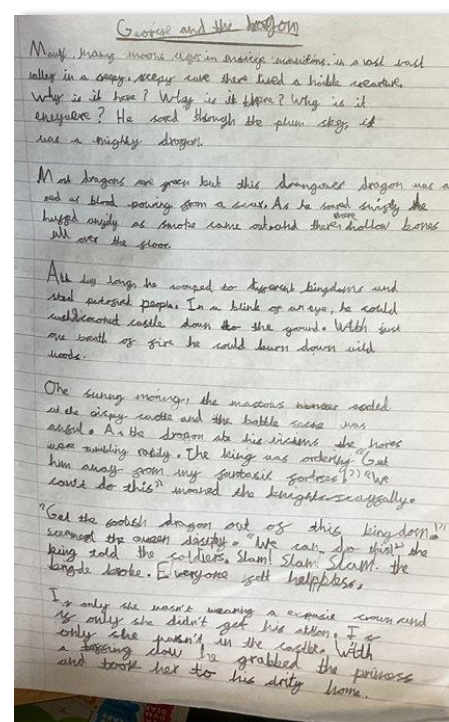 George and the dragon
Many, many moons ago, in mountions, in a vast vast
valley in a creepy, creepy cave there lived a horible creature.
Why is it here? Why is it there? Why is it
He sored through the plum skey, it
was a mighty dragon.
Most dragons are green but this dragon was a
red as blood powring from a scar. As he sored swiftly the
as smoke came out and there where hollow bones
all over the floor.
All day long, he swooped to different kingdoms and
steal petrified people. In a blink of an eye, he could
castle down to the ground. With just
one breath of fire he could burn down wild
woods.
One sunny moring, the monster
at the castle and the battle scene was
awful. As the dragon ate his the
were rumbling The king was "Get
him away from my fantasic fortress!" "We
can't do this" moaned the knights
"Get the foolish dragon out of this kingdom!"
the queen "We can do this!" the
king told the soldiers. Slam! Slam! Slam. the
broke. Everyone felt helppless.
If only she wasn't wearing a crown and
if only she didn't get his If
only she wasn't in the castle. With
a claw he grabbed the princess
and took her to his drity home.